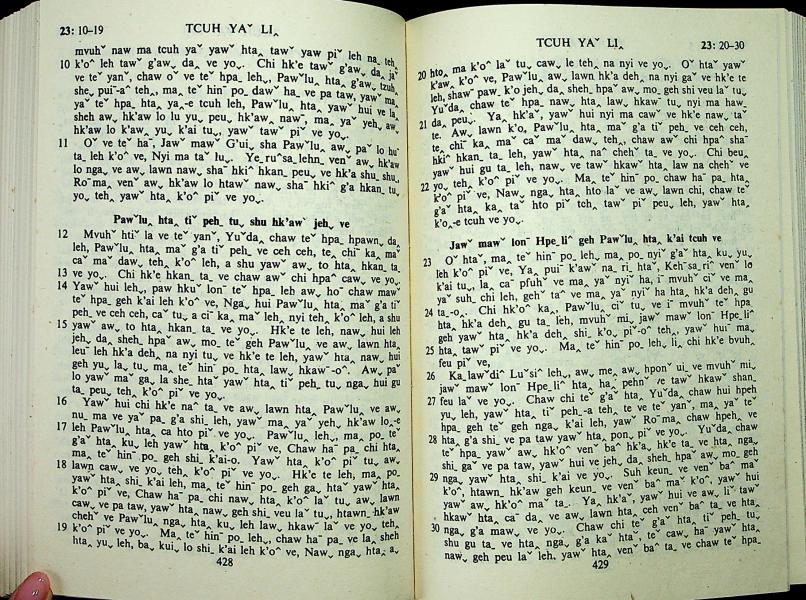 23: 10–19 TCUH YAˇ LIꞈ
mvuhˇ naw ma tcuh yaˇ yawˇ htaꞈ tawˇ yaw piˇ leh na_ teh_
10 k'o^ leh tawˇ g'aw_ da_ ve yo_. Chi hk'e tawˇ g'aw_ da_ jaˇ
ve teˇ yanˇ, chaw oˇ ve teˇ hpa_ leh_, Pawˇlu_ htaꞈ g'aw_ tzuh_
she_ pui⁻-aˇ teh_, ma_ teˇ hin⁻ po_ dawˇ ha_ ve pa taw, yawˇ ma_
yaˇ teˇ hpa_ htaꞈ ya_-e tcuh leh, Pawˇlu_ htaꞈ yawˇ hui ve la_
sheh aw_ hk'aw lo lu yu_ peu_ hk'aw_ nawˇ, ma_ yaˇ yeh_ aw_
hk'aw lo k'aw_ yu_ k'ai tu_, yawˇ tawˇ piˇ ve yo_.
11 Oˇ ve teˇ ha⁻, Jawˇ mawˇ G'ui_ sha Pawˇlu_ aw_ paˇ lo huˇ
ta_ leh k'o^ ve, Nyi ma taˇ lu_. Ye_ruˇsa_lehn_ venˇ aw_ hk'aw
lo nga_ ve aw_ lawn naw_ shaˇ hkiˇ hkan_ peu_ ve hk'a shu_ shu_
Roˇma_ venˇ aw_ hk'aw lo htawˇ naw_ shaˇ hkiˇ g'a hkan_ tu_
yo_ teh_ yawˇ htaꞈ k'o^ piˇ ve yo_.
Pawˇlu_ htaꞈ tiˇ peh_ tu_ shu hk'awˇ jeh_ ve
12 Mvuhˇ htiˇ la ve teˇ yanˇ, Yuˇda_ chaw teˇ hpa_ hpawn_ da_
leh, Pawˇlu_ htaꞈ maˇ g'a tiˇ peh_ ve ceh ceh, te_ chiˇ ka_ maˇ
caˇ maˇ daw_ teh_ k'o^ leh, a shu yawˇ aw_ to htaꞈ hkan_ ta_
13 ve yo_. Chi hk'e hkan_ ta_ ve chaw awˇ chi hpaˇ caw_ ve yo_.
14 Yawˇ hui leh_, paw hkuˇ lonˇ teˇ hpa_ leh aw_ hoˇ chaw mawˇ
teˇ hpa_ geh k'ai leh k'o^ ve, Nga_ hui Pawˇlu_ htaꞈ maˇ g'a tiˇ
peh_ ve ceh ceh, caˇ tu_ a ciˇ ka_ maˇ leh_ nyi teh_ k'o^ leh, a shu
15 yawˇ aw_ to htaꞈ hkan_ ta_ ve yo_. Hk'e te leh, nawˇ hui leh
jeh_ da_ shehˇ hpaˇ aw_ mo_ teˇ geh Pawˇlu_ ve aw_ lawn htaꞈ
leuˇ leh hk'a deh_ na nyi tu_ ve hk'e te leh, yawˇ htaꞈ nawˇ hui
geh yu_ la_ tu_ ma_ teˇ hin⁻ po_ htaꞈ law hkaw⁻-o^. Aw_ paˇ
lo yawˇ maˇ ga_ la she_ htaˇ yawˇ htaꞈ tiˇ peh_ tu_ nga_ hui gu
ta_ peu_ teh_ k'o^ piˇ ve yo_.
16 Yawˇ hui chi hk'e naˇ ta_ ve aw_ lawn htaꞈ Pawˇlu_ ve aw_
nu_ ma ve yaˇ pa_ g'a shi_ leh, yawˇ ma_ yaˇ yeh_ hk'aw lo_-e
17 leh Pawˇlu_ htaꞈ ca hto piˇ ve yo_. Pawˇlu_ leh_, ma_ po_ teˇ
g'aˇ htaꞈ ku_ leh yawˇ htaꞈ k'o^ piˇ ve, Chaw haˇ pa_ chi htaꞈ
ma_ teˇ hin⁻ po_ geh shi_ k'ai-o. Yawˇ htaꞈ k'o^ piˇ tu_ aw_
18 lawn caw_ ve yo_ teh_ k'o^ piˇ ve yo_. Hk'e te leh, ma_ po_
yawˇ htaꞈ shi_ k'ai leh, ma_ teˇ hin⁻ po_ geh ga_ htaˇ yawˇ htaꞈ
k'o^ piˇ ve, Chaw haˇ pa_ chi naw_ htaꞈ k'o^ laˇ tu_ aw_ lawn
caw_ ve pa taw, yawˇ htaꞈ naw_ geh shi_ veu laˇ tu_, htawn_ hk'aw
chehˇ ve Pawˇlu_ nga_ htaꞈ ku leh law hkaw⁻ laˇ ve yo_ teh_
19 k'o^ piˇ ve yo_. Ma_ teˇ hin⁻ po_ leh_, chaw haˇ pa_ ve la_ sheh
htaꞈ yu_ leh, ba_ kui_ lo shi_ k'ai leh k'o^ ve, Naw_ nga_ htaꞈ a_
428
TCUH YAˇ LIꞈ 23: 20–30
20 hto_ ma k'o^ laˇ tu_ caw_ le teh_ na nyi ve yo_. Oˇ htaˇ yawˇ
k'aw_ k'o^ ve, Pawˇlu_ aw_ lawn hk'a deh_ na nyi gaˇ ve hk'e te
leh, shawˇ paw_ k'o jeh_ da_ shehˇ hpaˇ aw_ mo_ geh shi veu laˇ tu_
Yuˇda_ chaw teˇ hpa_ naw_ htaꞈ law_ hkawˇ tu_ nyi ma haw_
21 da_ peu_. Ya_ hk'aˇ, yawˇ hui nyi ma cawˇ ve hk'e naw_ taˇ
te. Aw_ lawn k'o, Pawˇlu_ htaꞈ maˇ g'a tiˇ peh_ ve ceh ceh,
te_ chiˇ ka_ maˇ caˇ maˇ daw_ teh_, chaw awˇ chi hpaˇ sha⁻
hkiˇ hkan_ ta_ leh, yawˇ htaꞈ naˇ chehˇ ta_ ve yo_. Chi beu_
yawˇ hui gu ta_ leh, naw_ ve tawˇ hkawˇ htaꞈ law na chehˇ ve
22 yo_ teh_ k'o^ piˇ ve yo_. Ma_ teˇ hin⁻ po_ chaw haˇ pa_ htaꞈ
k'o^ piˇ ve, Naw_ nga_ htaꞈ hto laˇ ve aw_ lawn chi, chaw te
g'aˇ htaꞈ ka_ taˇ hto piˇ tch_ tawˇ piˇ peu_ leh, yawˇ htaꞈ
k'o_-e tcuh ve yo_.
Jawˇ mawˇ lon⁻ Hpe_li^ geh Pawˇlu_ htaꞈ k'ai tcuh ve
23 Oˇ htaˇ, ma_ teˇ hin⁻ po_ leh_ ma_ po_ nyiˇ g'aˇ htaꞈ ku_ yu_
leh k'o^ piˇ ve, Ya_ puiˇ k'awˇ na_ ri_ htaˇ, Kehˇsa_riˇ venˇ lo
k'ai tu_, la_ caˇ pfuhˇ ve ma_ yaˇ nyiˇ ha, iˇ mvuhˇ ciˇ ve ma_
yaˇ suhˇ chi leh, gehˇ taˇ ve ma_ yaˇ nyiˇ ha htaꞈ hk'a deh_ gu
24 ta_-o_. Chi hk'o^ ka_, Pawˇlu_ ciˇ tu_ ve iˇ mvuhˇ teˇ hpa_
htaꞈ hk'a deh_ gu ta_ leh, mvuhˇ mi_ jawˇ mawˇ lon⁻ Hpe_li^
geh yawˇ htaꞈ hk'a deh_ shi_ k'o_ piˇ-o^ teh_, yawˇ hui⁻ ma_
25 htaꞈ tawˇ piˇ ve yo_. Ma_ teˇ hin⁻ po_ leh_ li_ chi hk'e bvuh_
feu piˇ ve,
26 Ka_lawˇdiˇ Luˇsiˇ leh_, aw_ me_ aw_ hponˇ ui_ ve mvuhˇ mi_
jawˇ mawˇ lon⁻ Hpe_li^ htaꞈ ha_ pehnˇ re tawˇ hkawˇ shan_
27 feu laˇ ve yo_. Chaw chi teˇ g'aˇ htaꞈ Yuˇda_ chaw hui hpeh
yu_ leh, yawˇ htaꞈ tiˇ peh_-a teh_ te ve teˇ yanˇ, ma_ yaˇ teˇ
hpa_ geh teˇ geh nga_ k'ai leh, yawˇ Roˇma_ chaw hpehˇ ve
28 htaꞈ g'a shi_ ve pa taw yawˇ htaꞈ pon_ piˇ ve yo_. Yuˇda_ chaw
teˇ hpa_ yawˇ aw_ hk'o^ venˇ ba^ hk'a_ hk'e ta_ ve htaꞈ nga_
shi_ gaˇ ve pa taw, yawˇ hui ve jeh_ da_ shehˇ hpaˇ aw_ mo_ geh
29 nga_ yawˇ htaꞈ shi_ k'ai ve yo_. Suh keun_ ve venˇ ba^ maˇ
k'o^, htawn_ hk'aw geh keun_ ve venˇ ba^ maˇ k'o^, yawˇ hui
yawˇ aw_ hk'o^ maˇ ta_. Ya_ hk'aˇ, yawˇ hui ve aw_ liˇ tawˇ
hkawˇ htaꞈ caˇ da_ ve aw_ lawn htaꞈ, ceh venˇ ba^ ta_ ve htaꞈ
30 nga_ g'a maw_ ve yo_. Chaw chi teˇ g'aˇ htaꞈ tiˇ peh_ tu_
shu gu ta_ ve htaꞈ nga_ g'a kaˇ htaˇ, teˇ caw_ haˇ yawˇ htaꞈ
naw_ geh peu laˇ leh, yawˇ htaꞈ venˇ ba^ ta_ ve chaw teˇ hpa_
429